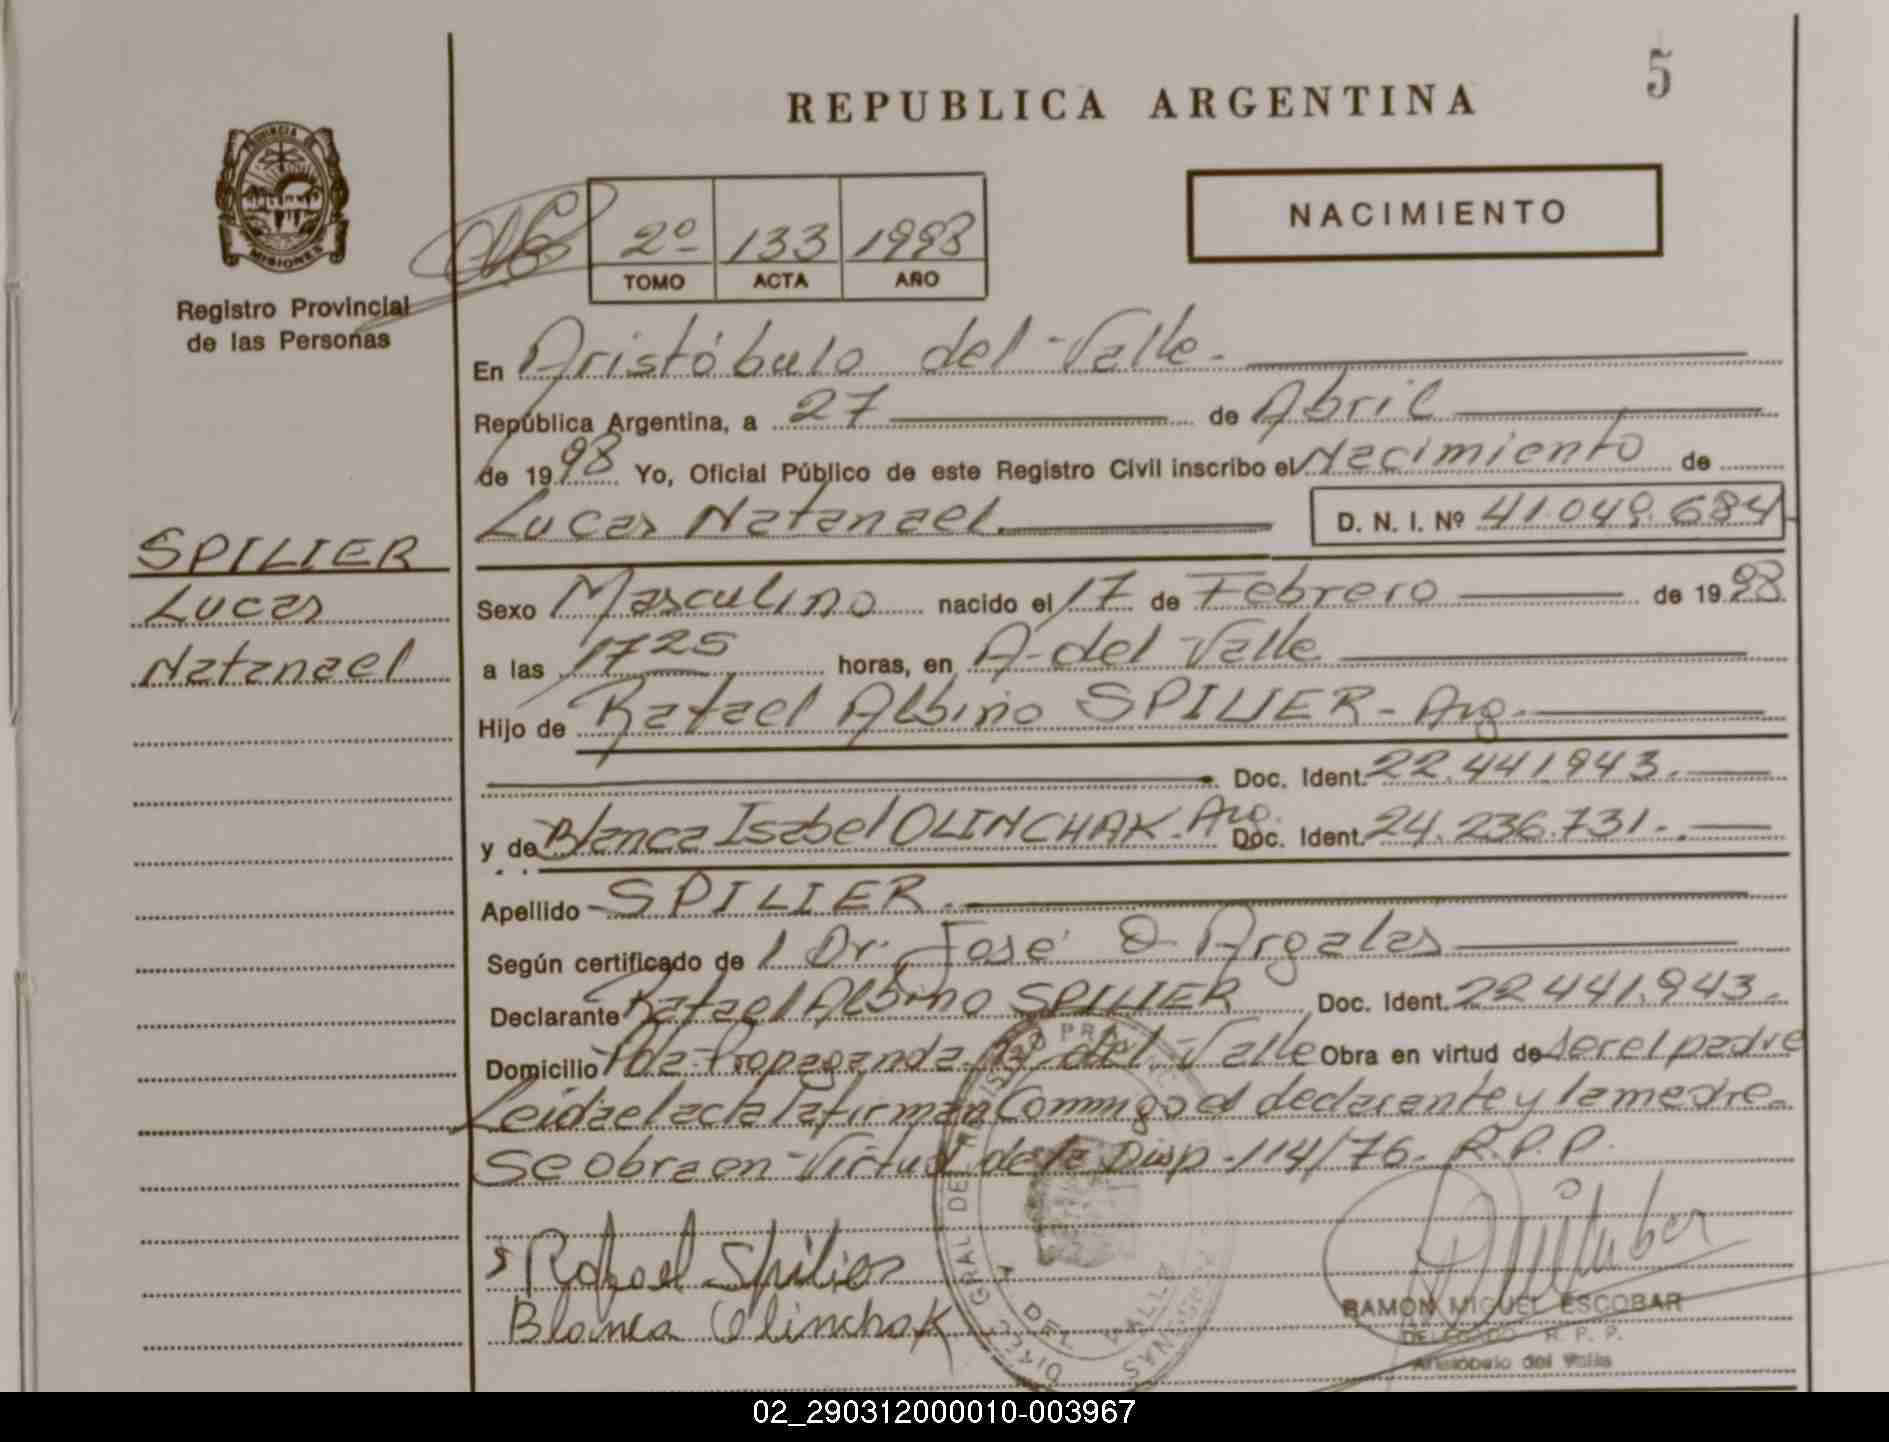 5
REPUBLICA ARGENTINA
NACIMIENTO
PROVINCIA DE
MISIONES
Registro Provincial
de las Personas
2º 133 1998
TOMO ACTA AÑO
En Aristóbulo del Valle.
República Argentina, a 27 de Abril
de 1998 Yo, Oficial Público de este Registro Civil inscribo el Nacimiento de
Lucas Natanael D. N. I. Nº 41.049.684
SPILIER
Lucas
Natanael
Sexo Masculino nacido el 17 de Febrero de 1998
a las 1725 horas, en A. del Valle
Hijo de Rafael Albino SPILIER - Arg.
Doc. Ident. 22.441.943.
y de Blanca Isabel OLINCHAK. Arg. Doc. Ident. 24.236.731.
Apellido SPILIER.
Según certificado de l Dr. José O. Argalas
Declarante Rafael Albino SPILIER Doc. Ident. 22.441.943.
Domicilio Pda. Propaganda. A. del Valle Obra en virtud de ser el padre
Leida el acta la firman Conmigo el declarante y la madre.
Se obra en Virtud de la Disp. 114/76. R.P.P.
Rafael Spilier
Blanca Olinchak
RAMON MIGUEL ESCOBAR
DELEGADO R. P. P.
Aristóbulo del Valle
02_290312000010-003967